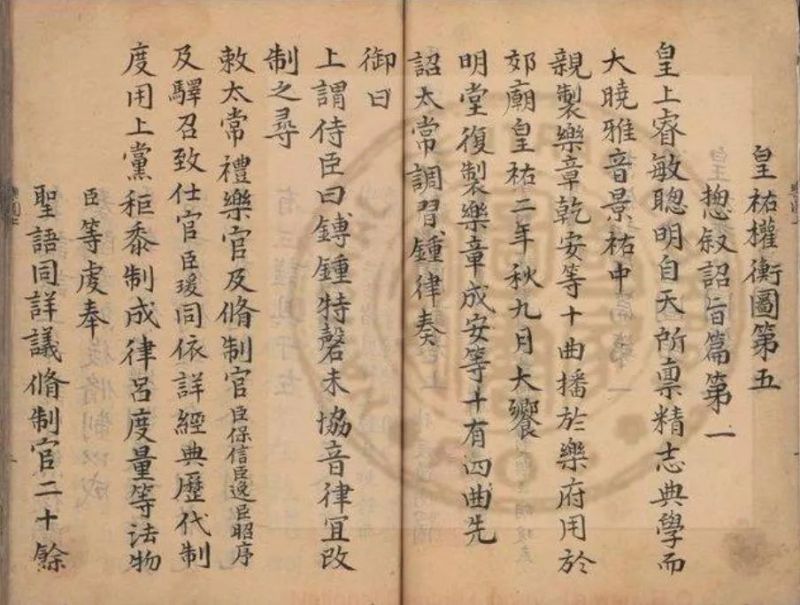 皇祐權衡圖第五
揔叙詔旨篇第一
皇上睿敏聰明自天所禀精志典學而
大曉雅音景祐中
親製樂章乾安等十曲播於樂府用於
郊廟皇祐二年秋九月大饗
明堂復製樂章成安等十有四曲先
詔太常調習鍾律奏
御日
上謂侍臣曰鎛鍾特磬未協音律宜改
制之尋
敕太常禮樂官及脩制官臣保信臣逸臣昭序
及驛召致仕官臣瑗同依詳經典歷代制
度用上黨秬黍制成律呂度量等法物
臣等虔奉
聖語同詳議脩制官二十餘